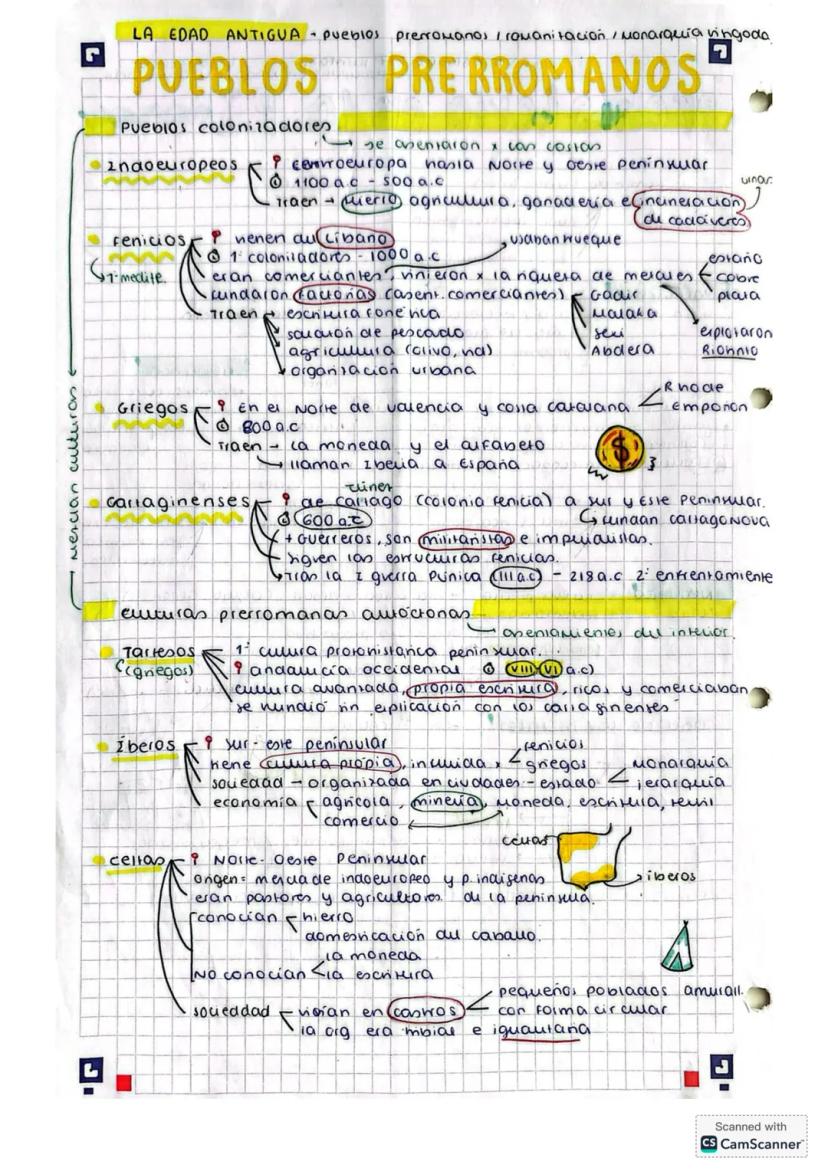 LA EDAD ANTIGUA - pueblos prerromanos / romanización / Monarquía visigoda
PUEBLOS PRERROMANOS
Pueblos colonizadores
se asentaron x las costas
Indoeuropeos centroeuropa hasta Norte y Oeste Peninsular
1100 a.c - 500 a.c
Traen → hierro, agricultura, ganadería e incineración
de cadáveres
urnas.
Fenicios vienen del Líbano usaban trueque
1º colonizadores - 1000 a.c
1º medite.
eran comerciantes, vinieron x la riqueza de metales
estaño
cobre
plata
fundaron factorías (asent. comerciantes)
Gadir
Malaka
Sexi
Abdera
explotaron
Riotinto
Traen → escritura fonética
salazón de pescado
agricultura (olivo, vid)
organización urbana
Mezclan culturas
Griegos En el Norte de Valencia y costa catalana
Rhode
Emporion
800 a.c
Traen → la moneda y el alfabeto
llaman Iberia a España
$
Túnez
Cartaginenses de Cartago (colonia fenicia) a sur y este Peninsular.
600 a.c fundan Cartago Nova
+ Guerreros, son militaristas e imperialistas.
siguen las estructuras fenicias.
Tras la I guerra Púnica (III a.c) - 218 a.c 2º enfrentamiento
culturas prerromanas autóctonas
asentamientos del interior.
Tartesos 1º cultura protohistórica peninsular.
(griegos) andalucía occidental VIII-VI a.c)
cultura avanzada, propia escritura, ricos y comerciaban
se hundió sin explicación con los cartaginenses
Íberos sur-este peninsular
tiene cultura propia, influida x
fenicios
griegos
sociedad → organizada en ciudades-estado
Monarquía
jerarquía
economía agrícola, minería, moneda, escritura, textil
comercio
celtas
íberos
celtas Norte-Oeste Peninsular
origen = mezcla de indoeuropeo y p. indígenas
eran pastores y agricultores de la península.
conocían hierro
domesticación del caballo.
No conocían
la moneda
la escritura
sociedad vivían en castros
pequeños poblados amurall.
con forma circular
la org era tribal e igualitaria
Scanned with
CS CamScanner